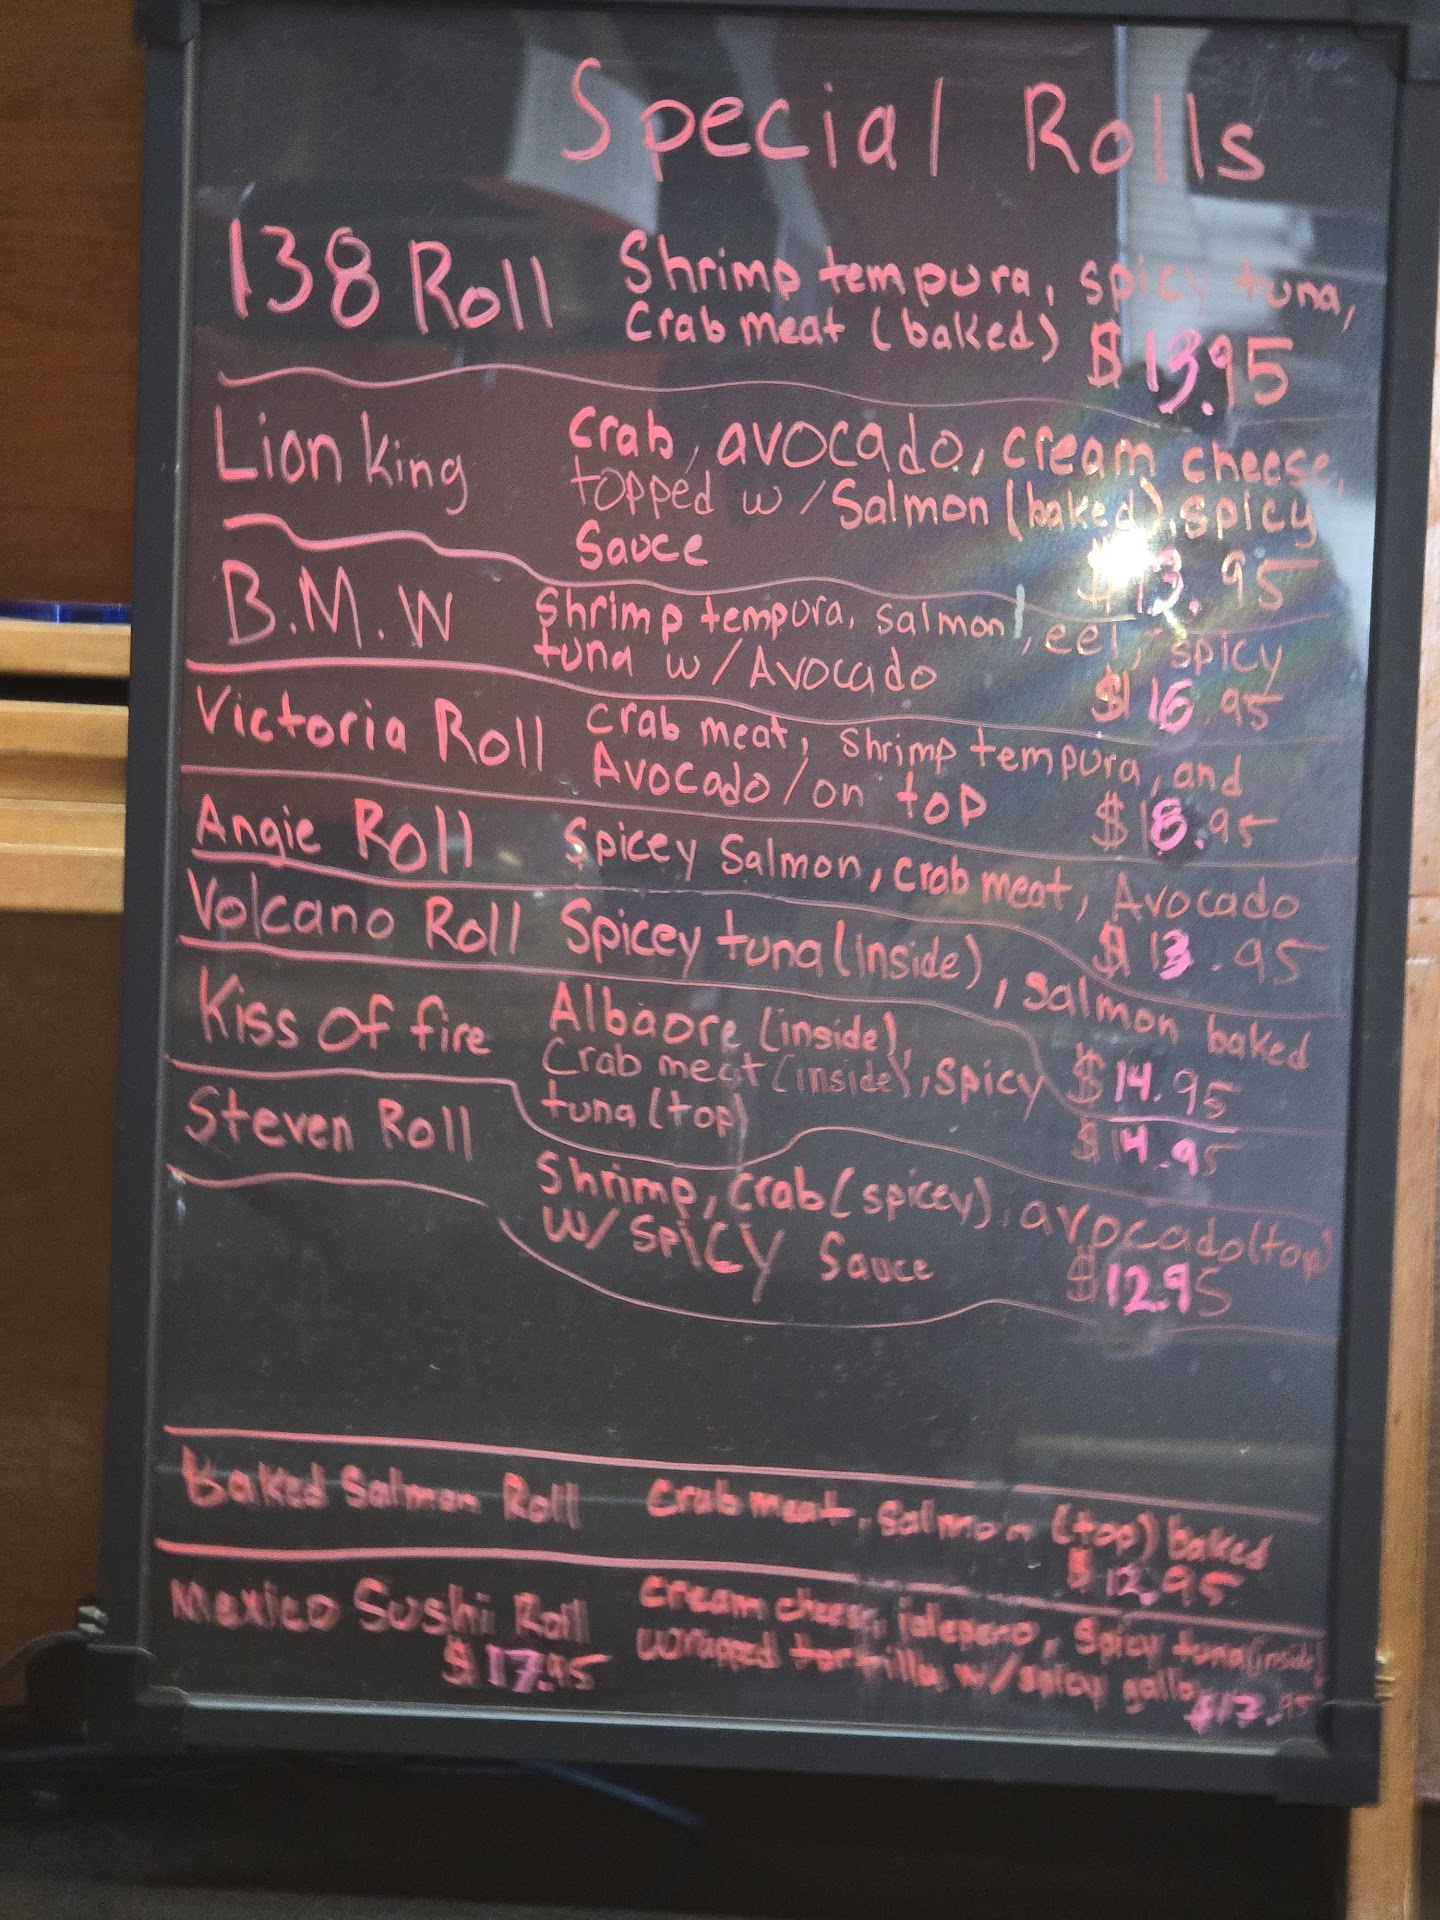 Special Rolls
138 Roll Shrimp tempura, spicy tuna,
Crab meat (baked) $13.95
Lion King Crab, avocado, cream cheese,
topped w/Salmon (baked), spicy
Sauce $13.95
B.M.W Shrimp tempura, salmon, eel, spicy
tuna w/Avocado $16.95
Victoria Roll Crab meat, Shrimp tempura, and
Avocado/on top $18.95
Angie Roll Spicey Salmon, Crab meat, Avocado
$13.95
Volcano Roll Spicey tuna (inside), Salmon baked
$14.95
Kiss Of fire Albaore (inside),
Crab meat (inside), Spicy
tuna (top) $14.95
Steven Roll Shrimp, Crab (spicey), avocado (top)
W/ SPICY Sauce $12.95
Baked Salmon Roll Crab meat, Salmon (top) baked
$12.95
Mexico Sushi Roll Cream cheese, jalepeno, Spicy tuna (inside)
$17.95 wrapped tortilla w/spicy gallo